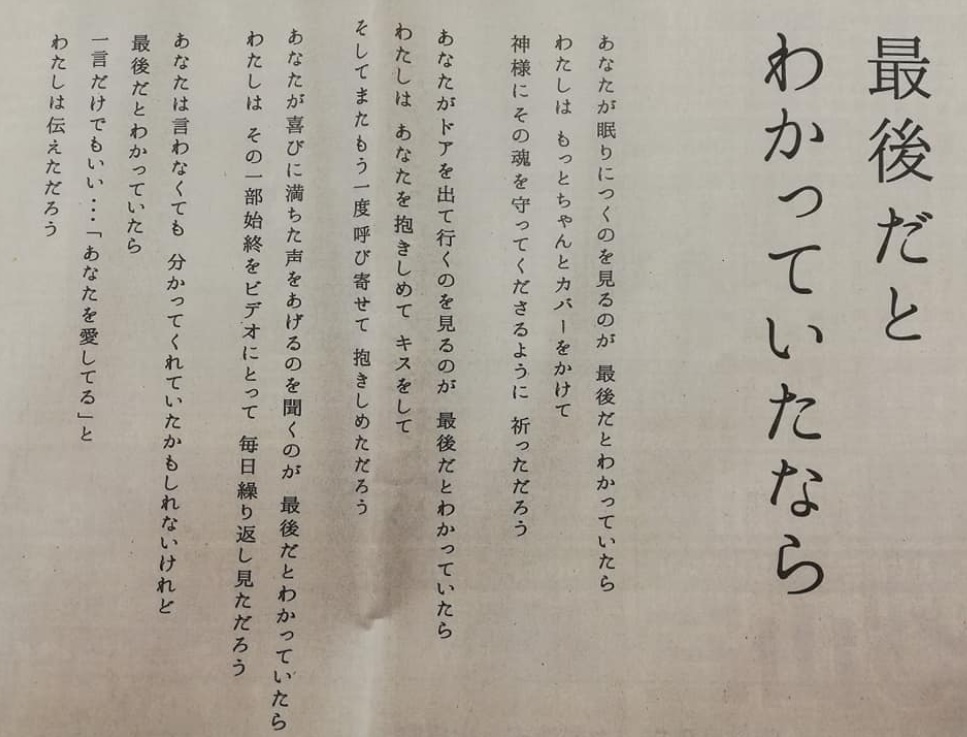 最後だと
わかっていたなら
あなたが眠りにつくのを見るのが 最後だとわかっていたら
わたしは もっとちゃんとカバーをかけて
神様にその魂を守ってくださるように 祈っただろう
あなたがドアを出て行くのを見るのが 最後だとわかっていたら
わたしは あなたを抱きしめて キスをして
そしてまたもう一度呼び寄せて 抱きしめただろう
あなたが喜びに満ちた声をあげるのを聞くのが 最後だとわかっていたら
わたしは その一部始終をビデオにとって 毎日繰り返し見ただろう
あなたは言わなくても 分かってくれていたかもしれないけれど
最後だとわかっていたら
一言だけでもいい・・・「あなたを愛してる」と
わたしは伝えただろう